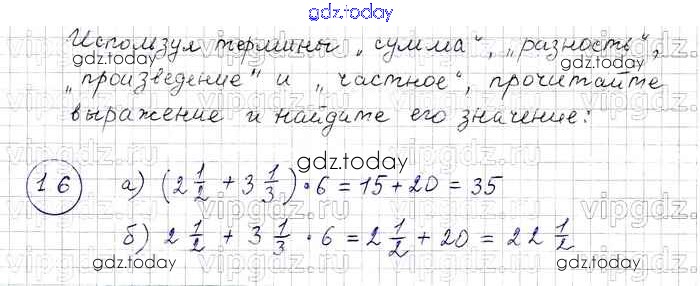 gdz.today
Используя термины „сумма“, „разность“,
„произведение“ и „частное“, прочитайте
выражение и найдите его значение:
16 а) (2 1/2 + 3 1/3) · 6 = 15 + 20 = 35
б) 2 1/2 + 3 1/3 · 6 = 2 1/2 + 20 = 22 1/2
gdz.today
gdz.today
gdz.today
gdz.today
gdz.today
vipgdz.ru